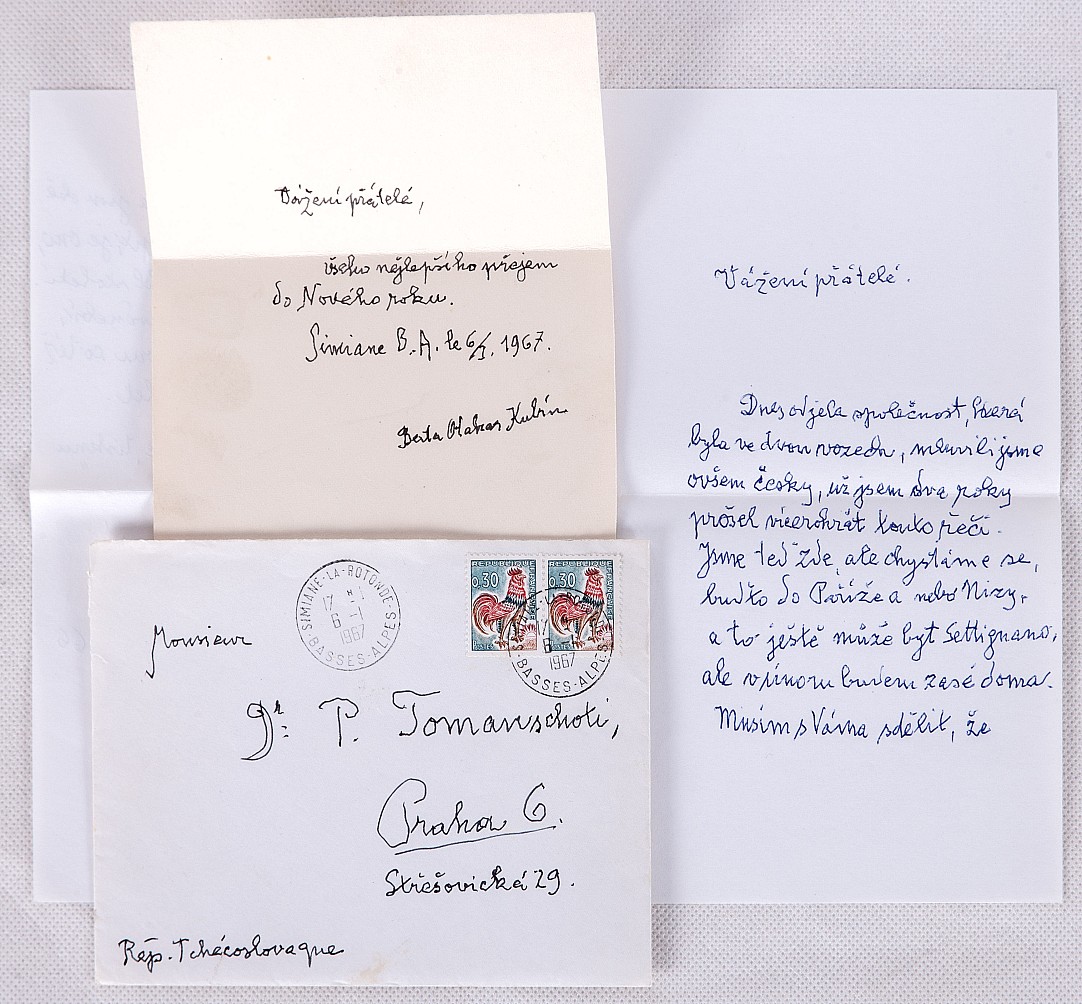 Vážení přátelé,
všeho nejlepšího přejem
do Nového roku.
Simiane B.A. le 6/I. 1967.
Berta Otakar Kubín
Vážení přátelé.
Dnes odjela společnost, která
byla ve dvou vozech, mluvili jsme
ovšem česky, už jsem dva roky
prošel vícerohrát touto řečí.
Jsme teď zde, ale chystáme se,
buďto do Paříže a nebo Nizy,
a to ještě může být Settignano,
ale v únoru budem zasé doma.
Musím s Váma sdělit, že
SIMIANE-LA-ROTONDE
17 H
6 -1
1967
BASSES-ALPES
REPUBLIQUE FRANÇAISE
0,30
POSTES
REPUBLIQUE FRANÇAISE
0,30
6 -1
1967
BASSES-ALPES
Monsieur
Dr. P. Tomanschoti,
Praha 6.
Střešovická 29.
Rép. Tchécoslovaque